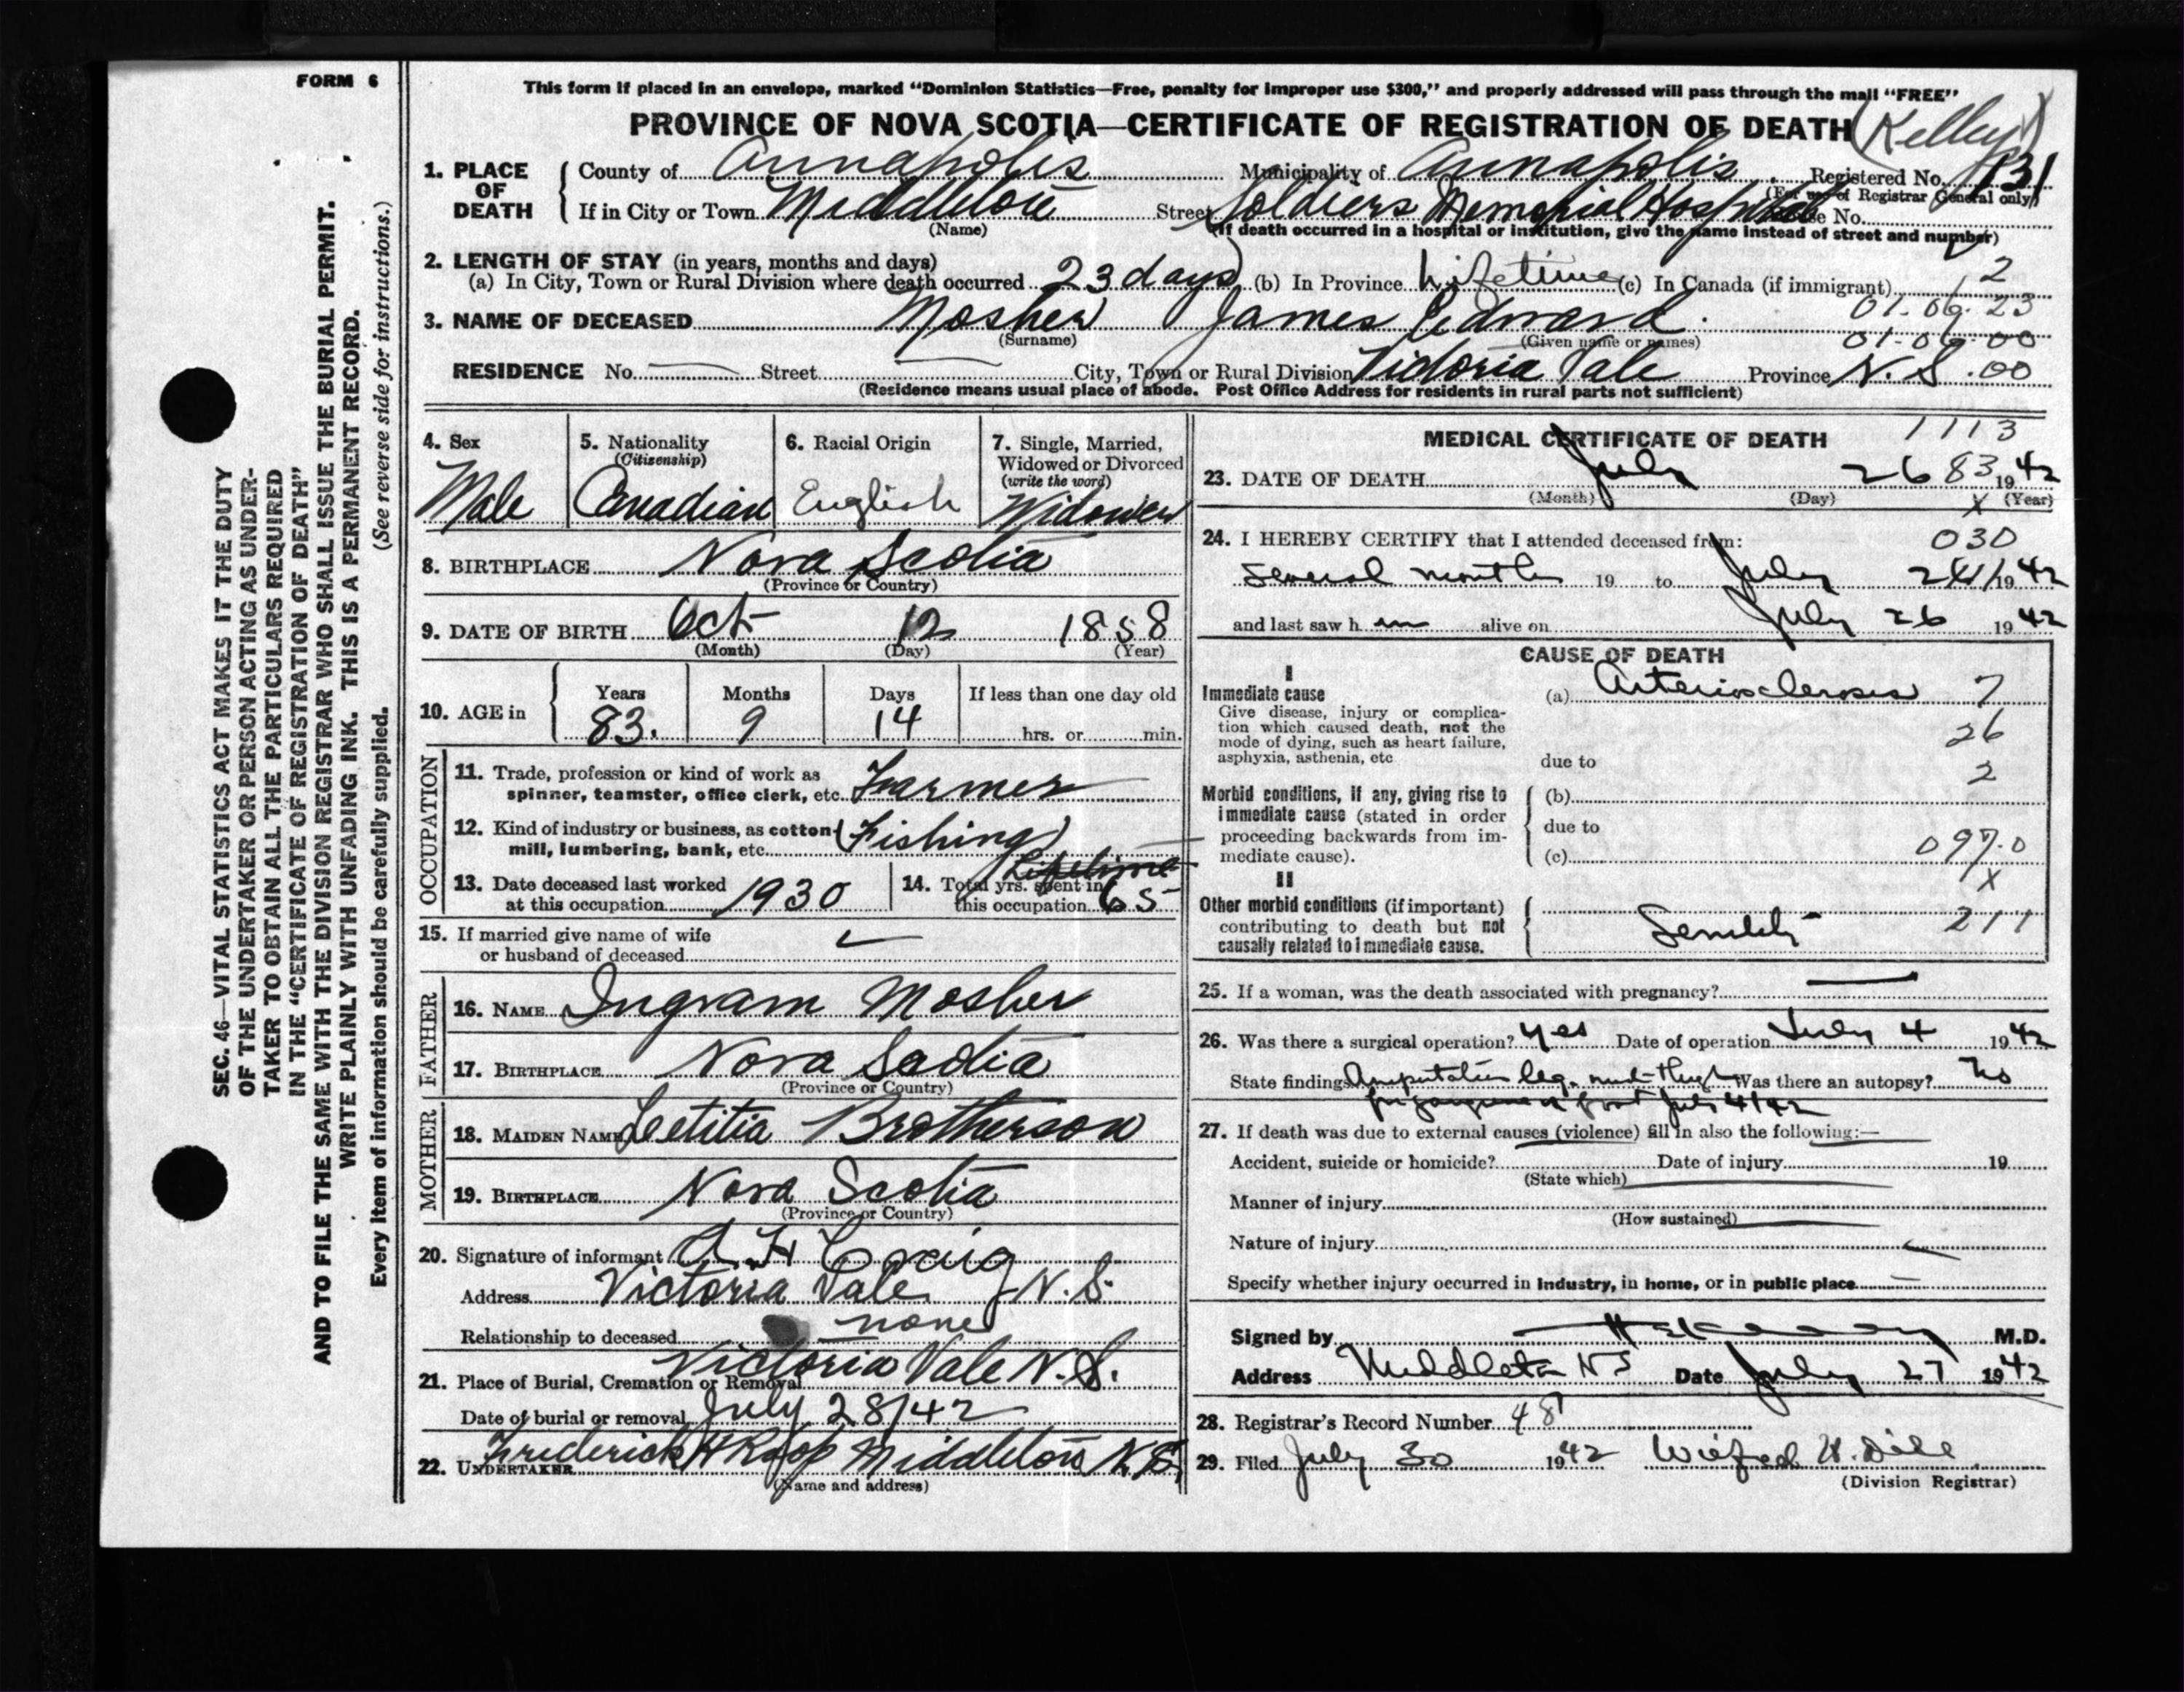 FORM 6
This form if placed in an envelope, marked "Dominion Statistics—Free, penalty for improper use $300," and properly addressed will pass through the mail "FREE"
PROVINCE OF NOVA SCOTIA—CERTIFICATE OF REGISTRATION OF DEATH (Kelley)
1. PLACE OF DEATH { County of Annapolis Municipality of Annapolis Registered No. 131
(For use of Registrar General only)
If in City or Town Middleton Street Soldiers Memorial Hospital House No.
(Name) (If death occurred in a hospital or institution, give the name instead of street and number)
2. LENGTH OF STAY (in years, months and days)
(a) In City, Town or Rural Division where death occurred 23 days (b) In Province Lifetime (c) In Canada (if immigrant) 2
3. NAME OF DECEASED Mosher James Edward. 01-09-23
(Surname) (Given name or names) 01-06-00
RESIDENCE No. — Street — City, Town or Rural Division Victoria Vale Province N.S. 00
(Residence means usual place of abode. Post Office Address for residents in rural parts not sufficient)
4. Sex
Male
5. Nationality
(Citizenship)
Canadian
6. Racial Origin
English
7. Single, Married, Widowed or Divorced
(write the word)
Widower
8. BIRTHPLACE Nova Scotia
(Province or Country)
9. DATE OF BIRTH Oct 12 1858
(Month) (Day) (Year)
10. AGE in { Years Months Days If less than one day old
83. 9 14 hrs. or min.
OCCUPATION
11. Trade, profession or kind of work as
spinner, teamster, office clerk, etc. Farmer
12. Kind of industry or business, as cotton
mill, lumbering, bank, etc. (Fishing)
Lifetime
13. Date deceased last worked
at this occupation 1930
14. Total yrs. spent in
this occupation 65
15. If married give name of wife
or husband of deceased
FATHER
16. NAME Ingram Mosher
17. BIRTHPLACE Nova Scotia
(Province or Country)
MOTHER
18. MAIDEN NAME Leetitia Brotherson
19. BIRTHPLACE Nova Scotia
(Province or Country)
20. Signature of informant A H Craig
Address Victoria Vale N.S.
Relationship to deceased none
21. Place of Burial, Cremation or Removal Victoria Vale N.S.
Date of burial or removal July 28/42
22. UNDERTAKER Frederick H Roop Middleton N.S.
(Name and address)
MEDICAL CERTIFICATE OF DEATH 1113
23. DATE OF DEATH July 26 83 1942
(Month) (Day) X (Year)
24. I HEREBY CERTIFY that I attended deceased from: 030
Several months 19 to July 1942
and last saw h im alive on July 26 1942
CAUSE OF DEATH
I
Immediate cause (a) Arteriosclerosis 7
Give disease, injury or complication which caused death, not the mode of dying, such as heart failure, asphyxia, asthenia, etc 26
due to 2
Morbid conditions, if any, giving rise to immediate cause (stated in order proceeding backwards from immediate cause). { (b)
due to
(c) 097.0
X
II
Other morbid conditions (if important) contributing to death but not causally related to immediate cause. { Senility 211
25. If a woman, was the death associated with pregnancy? —
26. Was there a surgical operation? yes Date of operation July 4 1942
State findings Amputation leg, mid-thigh Was there an autopsy? No
for gangrene of foot July 4/42
27. If death was due to external causes (violence) fill in also the following:—
Accident, suicide or homicide? Date of injury 19
(State which)
Manner of injury
(How sustained)
Nature of injury
Specify whether injury occurred in industry, in home, or in public place
Signed by M.D.
Address Middleton NS Date July 27 1942
28. Registrar's Record Number 48
29. Filed July 30 1942 Wilfred H. Dill
(Division Registrar)
SEC. 46—VITAL STATISTICS ACT MAKES IT THE DUTY
OF THE UNDERTAKER OR PERSON ACTING AS UNDER-
TAKER TO OBTAIN ALL THE PARTICULARS REQUIRED
IN THE "CERTIFICATE OF REGISTRATION OF DEATH"
AND TO FILE THE SAME WITH THE DIVISION REGISTRAR WHO SHALL ISSUE THE BURIAL PERMIT.
WRITE PLAINLY WITH UNFADING INK. THIS IS A PERMANENT RECORD.
Every item of information should be carefully supplied. (See reverse side for instructions.)